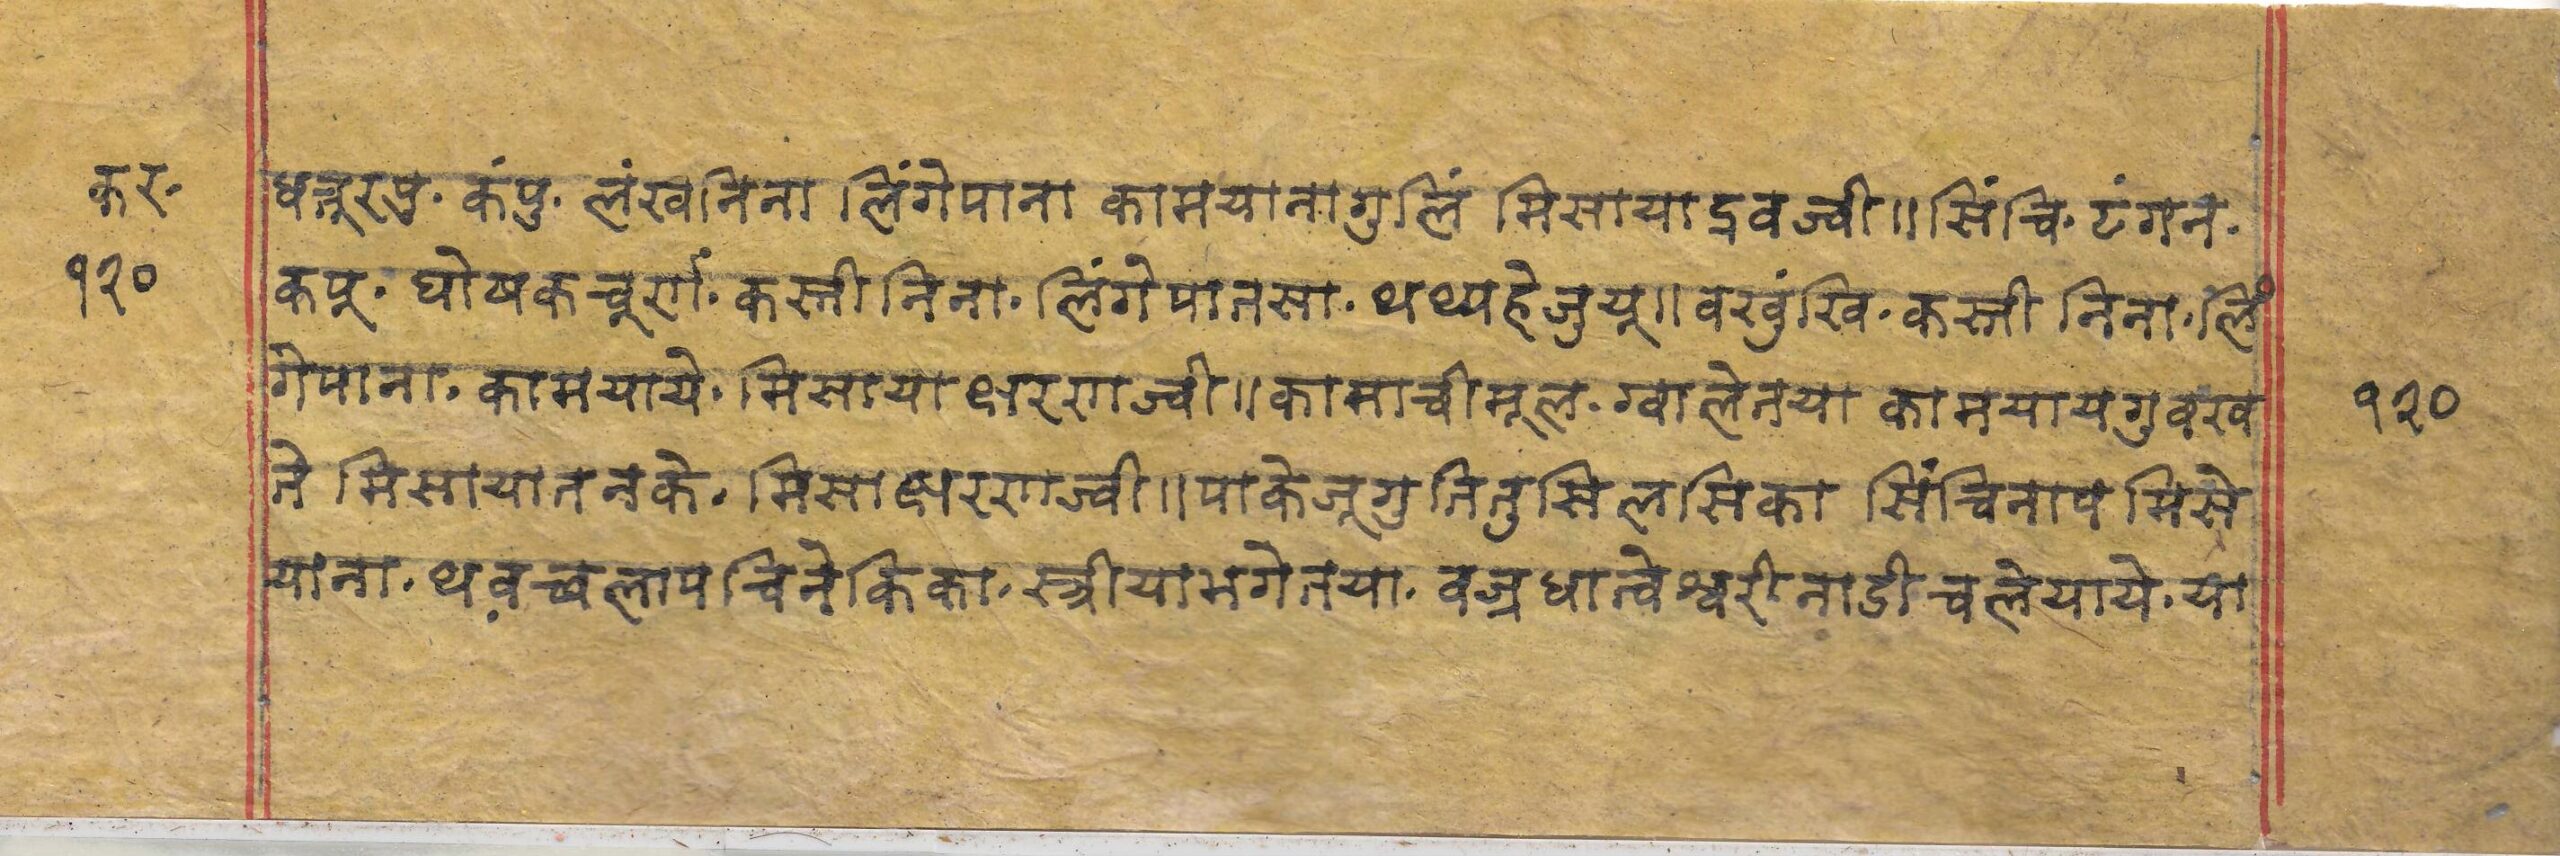 कर. धत्तूरपु. कंपु. लंखनिना लिंगेपाना कामयानागुलिं मिसायाद्रवज्वी॥सिंचि. टंगन.
१२० कपू. घोषकचूर्ण. कस्तीनिना. लिंगेपातसा. थथ्यहेजुयू॥वखुंखि. कस्ती निना. लिं
गेपाना. कामयाये. मिसाया क्षरणज्वी॥कामाचीमूल. ग्वालेनया कामयायगुवखत १२०
ने मिसायातनके. मिसाक्षरणज्वी॥पाकेजूगु तितुसिलसिका सिंचिनाप मिसे
याना. थवच्वलापचिनेकिका. स्त्रीयाभगेतया. वज्रधात्वेश्वरीनाडी चलेयाये. या